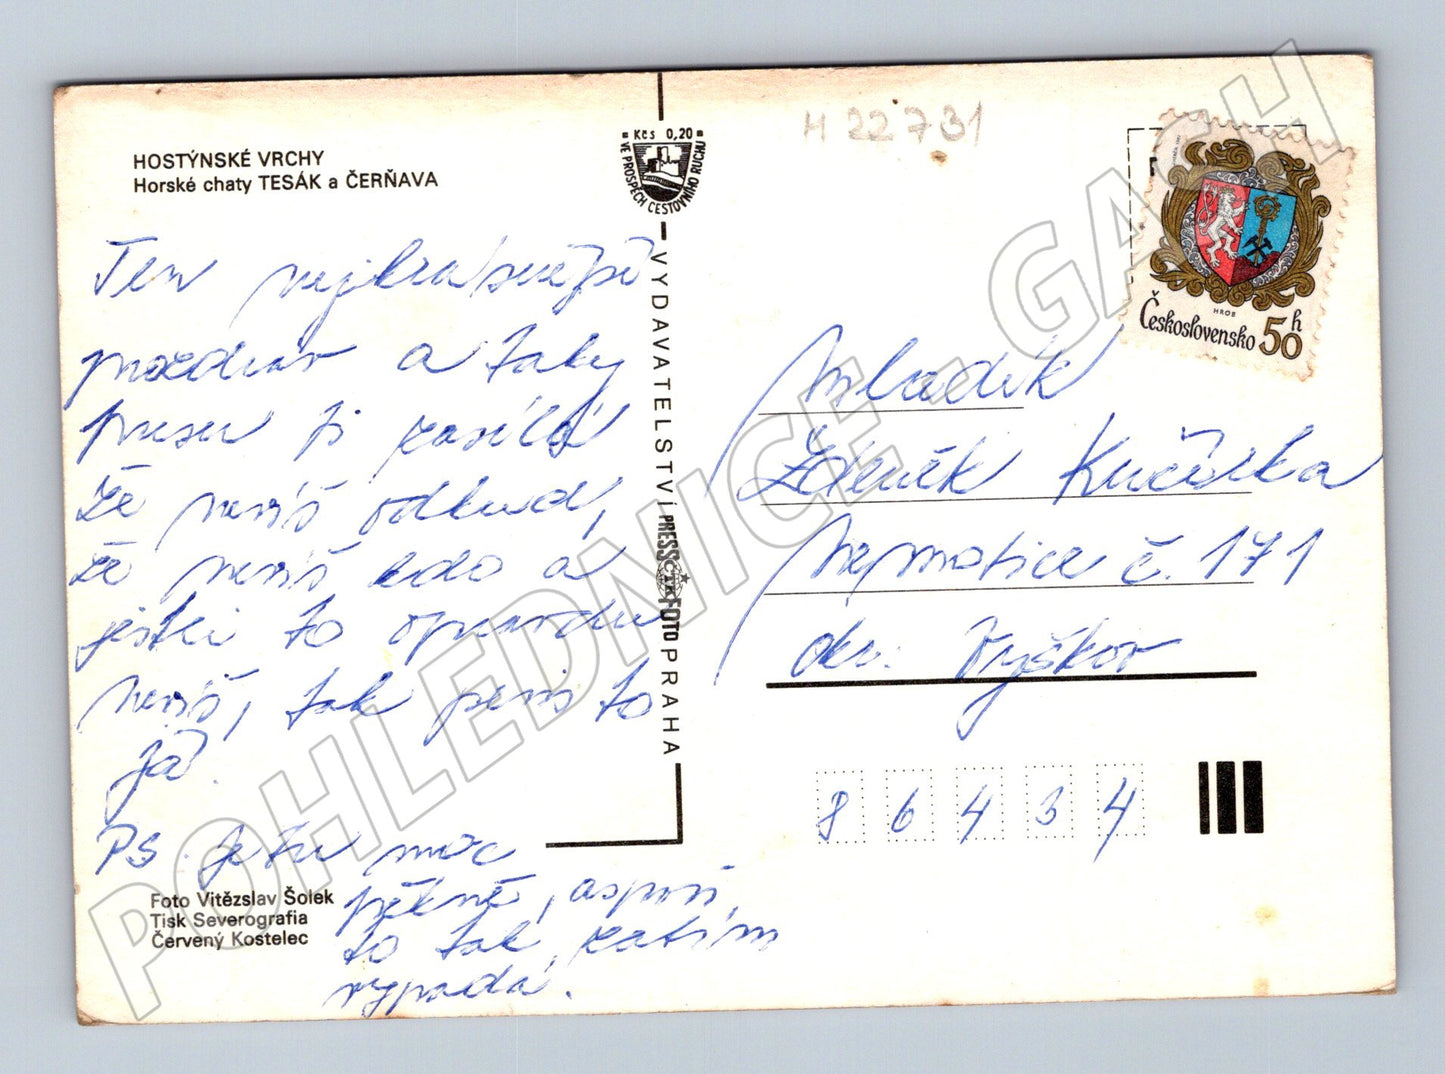 HOSTÝNSKÉ VRCHY
Horské chaty TESÁK a ČERŇAVA
Kčs 0,20
VE PROSPĚCH CESTOVNÍHO RUCHU
H 22731
VYDAVATELSTVÍ PRESSFOTO PRAHA
ČTK
HROB
Československo 50 h
Ten nejkrásnější
pozdrav a taky
pusu ti zasílá
že nevíš odkud,
že nevíš kdo a
jestli to opravdu
nevíš, tak jsem to
já.
PS. Je tu moc
pěkně, aspoň,
to tak zatím
vypadá.
Foto Vítězslav Šolek
Tisk Severografia
Červený Kostelec
Mladík
Zdeněk Kučírka
Nemotice č. 171
okr. Vyškov
8 6 4 3 4
POHLEDNICE - GACH